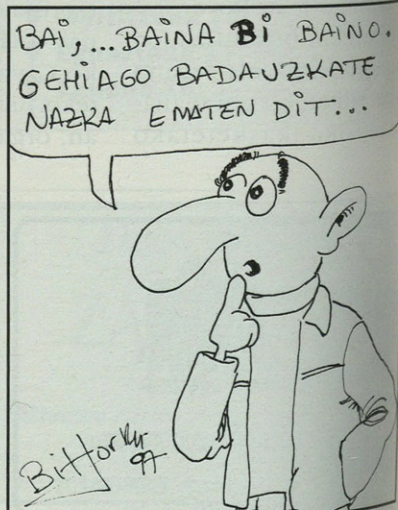 BAI,...BAINA BI BAINO.
GEHIAGO BADAUZKATE
NAZKA EMATEN DIT...
Bittor
97